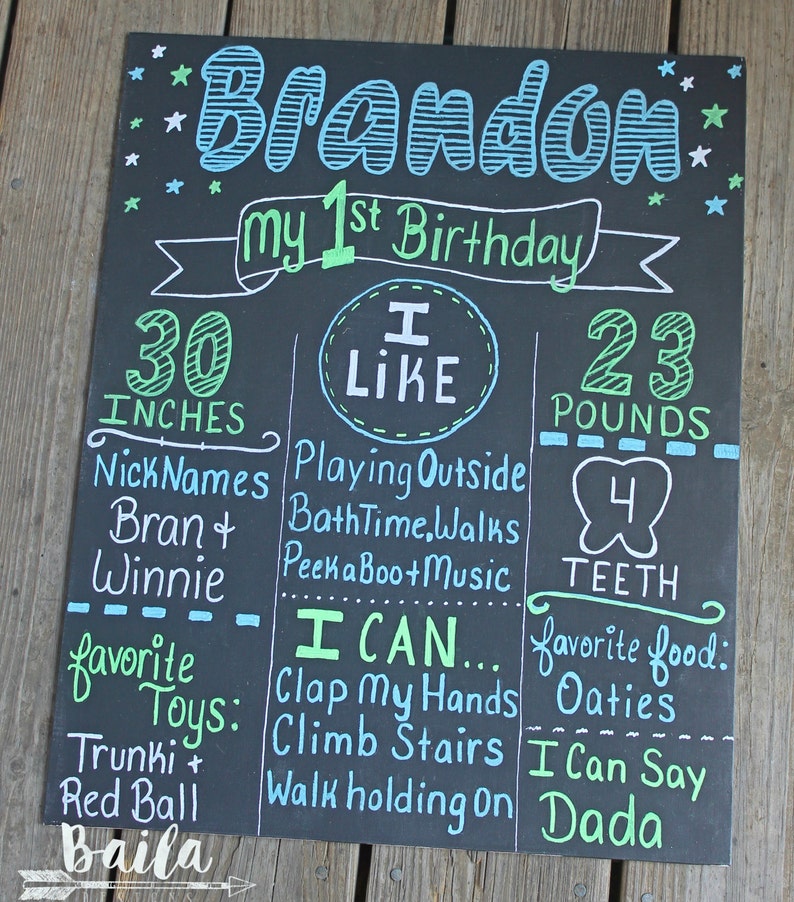 Brandon
my 1st Birthday
30
INCHES
NickNames
Bran +
Winnie
favorite
Toys:
Trunki +
Red Ball
I
LiKE
Playing Outside
BathTime, Walks
PeekaBoo + Music
I CAN...
Clap My Hands
Climb Stairs
Walk holding On
23
POUNDS
4
TEETH
favorite food:
Oaties
I Can Say
Dada
Baila